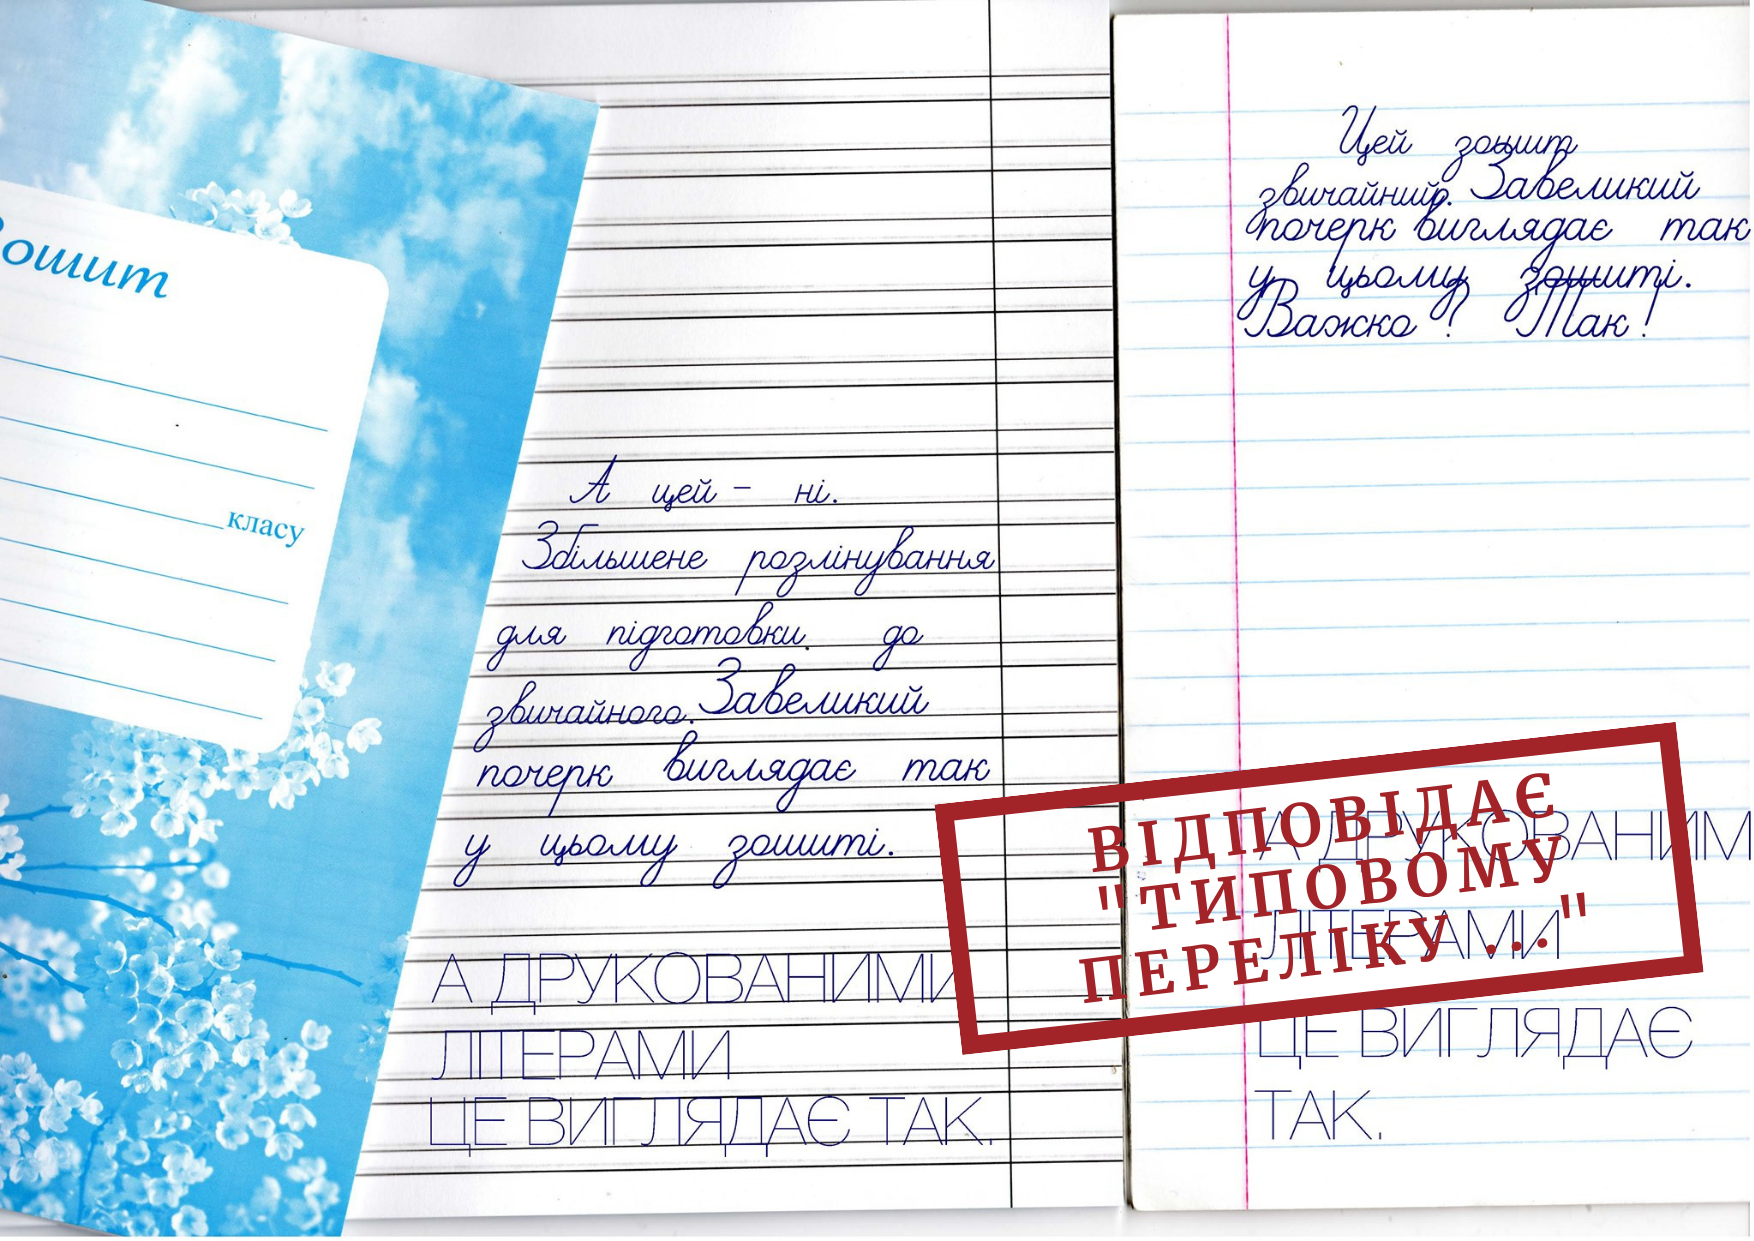 Зошит
класу
А цей – ні.
Збільшене розлінування
для підготовки до
звичайного. Завеликий
почерк виглядає так
у цьому зошиті.
А ДРУКОВАНИМИ
ЛІТЕРАМИ
ЦЕ ВИГЛЯДАЄ ТАК.
Цей зошит
звичайний. Завеликий
почерк виглядає так
у цьому зошиті.
Важко? Так!
А ДРУКОВАНИМ
ЛІТЕРАМИ
ЦЕ ВИГЛЯДАЄ
ТАК.
ВІДПОВІДАЄ
"ТИПОВОМУ
ПЕРЕЛІКУ ..."